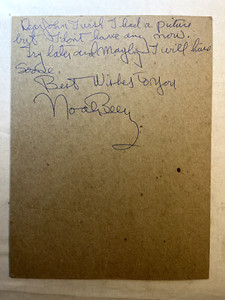 Dear Jon I wish I had a picture
but I dont have any now.
Try later and Maybe I will have
some.
Best Wishes to you
Noah Beery